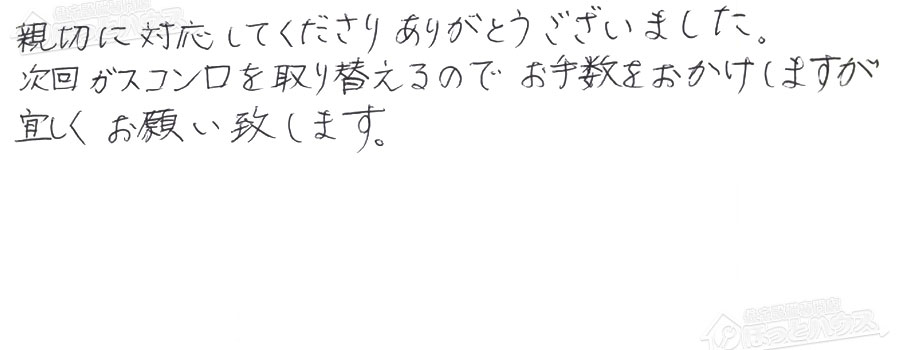 親切に対応してくださりありがとうございました。
次回ガスコンロを取り替えるのでお手数をおかけしますが
宜しくお願い致します。
ほっとハウス